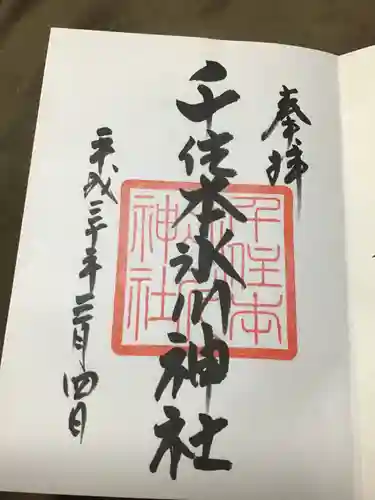 奉拝
千住本氷川神社
平成三十年二月四日
千住本
氷川
神社